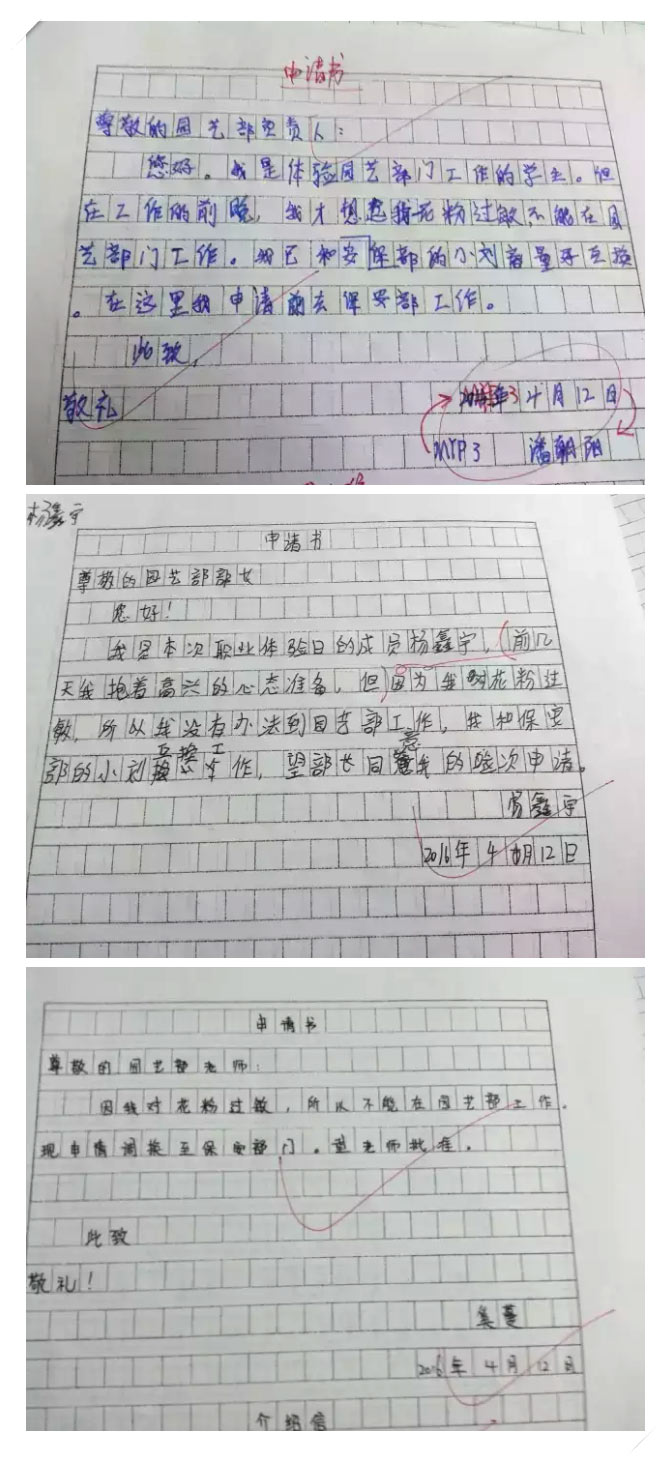 申请书
尊敬的园艺部负责人：
您好。我是体验园艺部门工作的学生。但
在工作的前晚，我才想起我花粉过敏不能在园
艺部门工作。我已和安保部的小刘商量好互换
。在这里我申请前去保安部工作。
此致，
敬礼
4月12日
MYP3 潘朝阳
杨鑫宇
申请书
尊敬的园艺部部长
您好！
我是本次职业体验日的成员杨鑫宇，（前几
天我抱着高兴的心态准备，但）因为我对花粉过
敏，所以我没有办法到园艺部工作，我和保安
部的小刘互换工作，望部长同意我的这次申请。
杨鑫宇
2016年4月12日
申请书
尊敬的园艺部老师：
因我对花粉过敏，所以不能在园艺部工作。
现申请调换至保安部门。望老师批准。
此致
敬礼！
2016年4月12日
介绍信